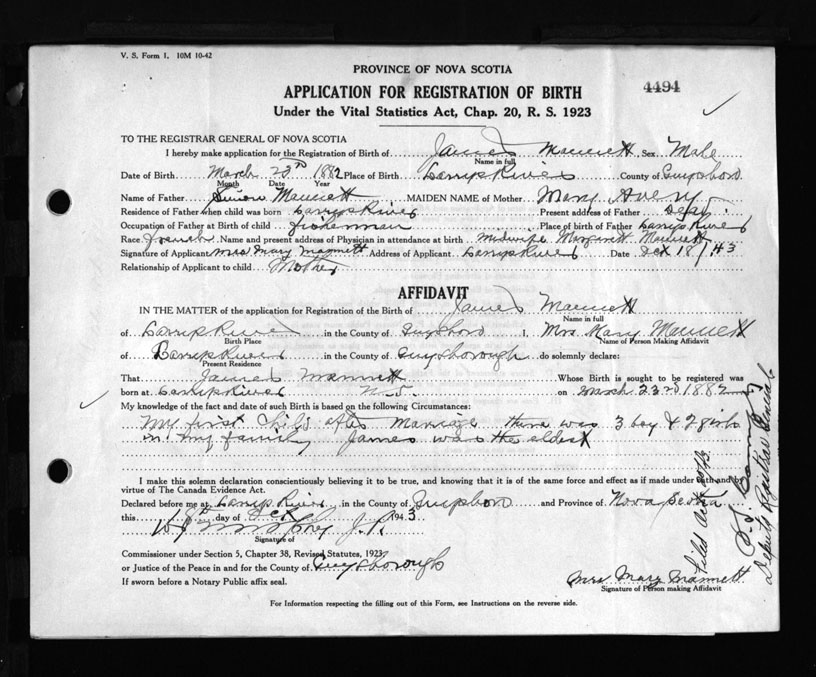 V. S. Form 1. 10M 10-42
PROVINCE OF NOVA SCOTIA
4494
APPLICATION FOR REGISTRATION OF BIRTH
Under the Vital Statistics Act, Chap. 20, R. S. 1923
TO THE REGISTRAR GENERAL OF NOVA SCOTIA
I hereby make application for the Registration of Birth of James Mannett Sex Male
Name in full
Date of Birth March 23rd 1882 Place of Birth Larrys River County of Guysboro
Month Date Year
Name of Father Simon Mannett MAIDEN NAME of Mother Mary Avery
Residence of Father when child was born Larrys River Present address of Father
Occupation of Father at Birth of child fisherman Place of birth of Father Larrys River
Race French Name and present address of Physician in attendance at birth midwife Margaret Mannett
Signature of Applicant Mrs Mary Mannett Address of Applicant Larrys River Date Oct 18 / 43
Relationship of Applicant to child Mother
AFFIDAVIT
IN THE MATTER of the application for Registration of the Birth of James Mannett
Name in full
of Larrys River in the County of Guysboro I, Mrs. Mary Mannett
Birth Place Name of Person Making Affidavit
of Larrys River in the County of Guysborough do solemnly declare:
Present Residence
That James Mannett Whose Birth is sought to be registered was
born at Larrys River N.S. on March 23rd 1882
My knowledge of the fact and date of such Birth is based on the following Circumstances:
My first child after marriage there was 3 boy & 2 girls
in my family James was the eldest
I make this solemn declaration conscientiously believing it to be true, and knowing that it is of the same force and effect as if made under oath and by
virtue of The Canada Evidence Act.
Declared before me at Larrys River in the County of Guysboro and Province of Nova Scotia
this 18th day of Oct 1943
J.P.
Signature of
Commissioner under Section 5, Chapter 38, Revised Statutes, 1923
or Justice of the Peace in and for the County of Guysborough
If sworn before a Notary Public affix seal.
Mrs Mary Mannett
Signature of Person making Affidavit
For Information respecting the filling out of this Form, see Instructions on the reverse side.
Filed Oct
Deputy Registrar General